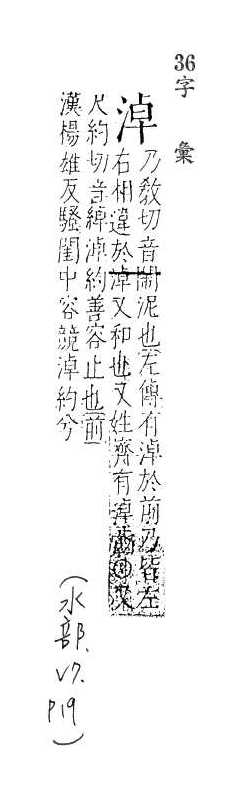 36字彙
淖
乃教切音鬧泥也左傳有淖於前乃皆左
右相違於淖又和也又姓齊有淖齒㊟又
尺約切音綽淖約善容止也前
漢楊雄反騷閨中容競淖約兮
(水部.
V7.
P19)